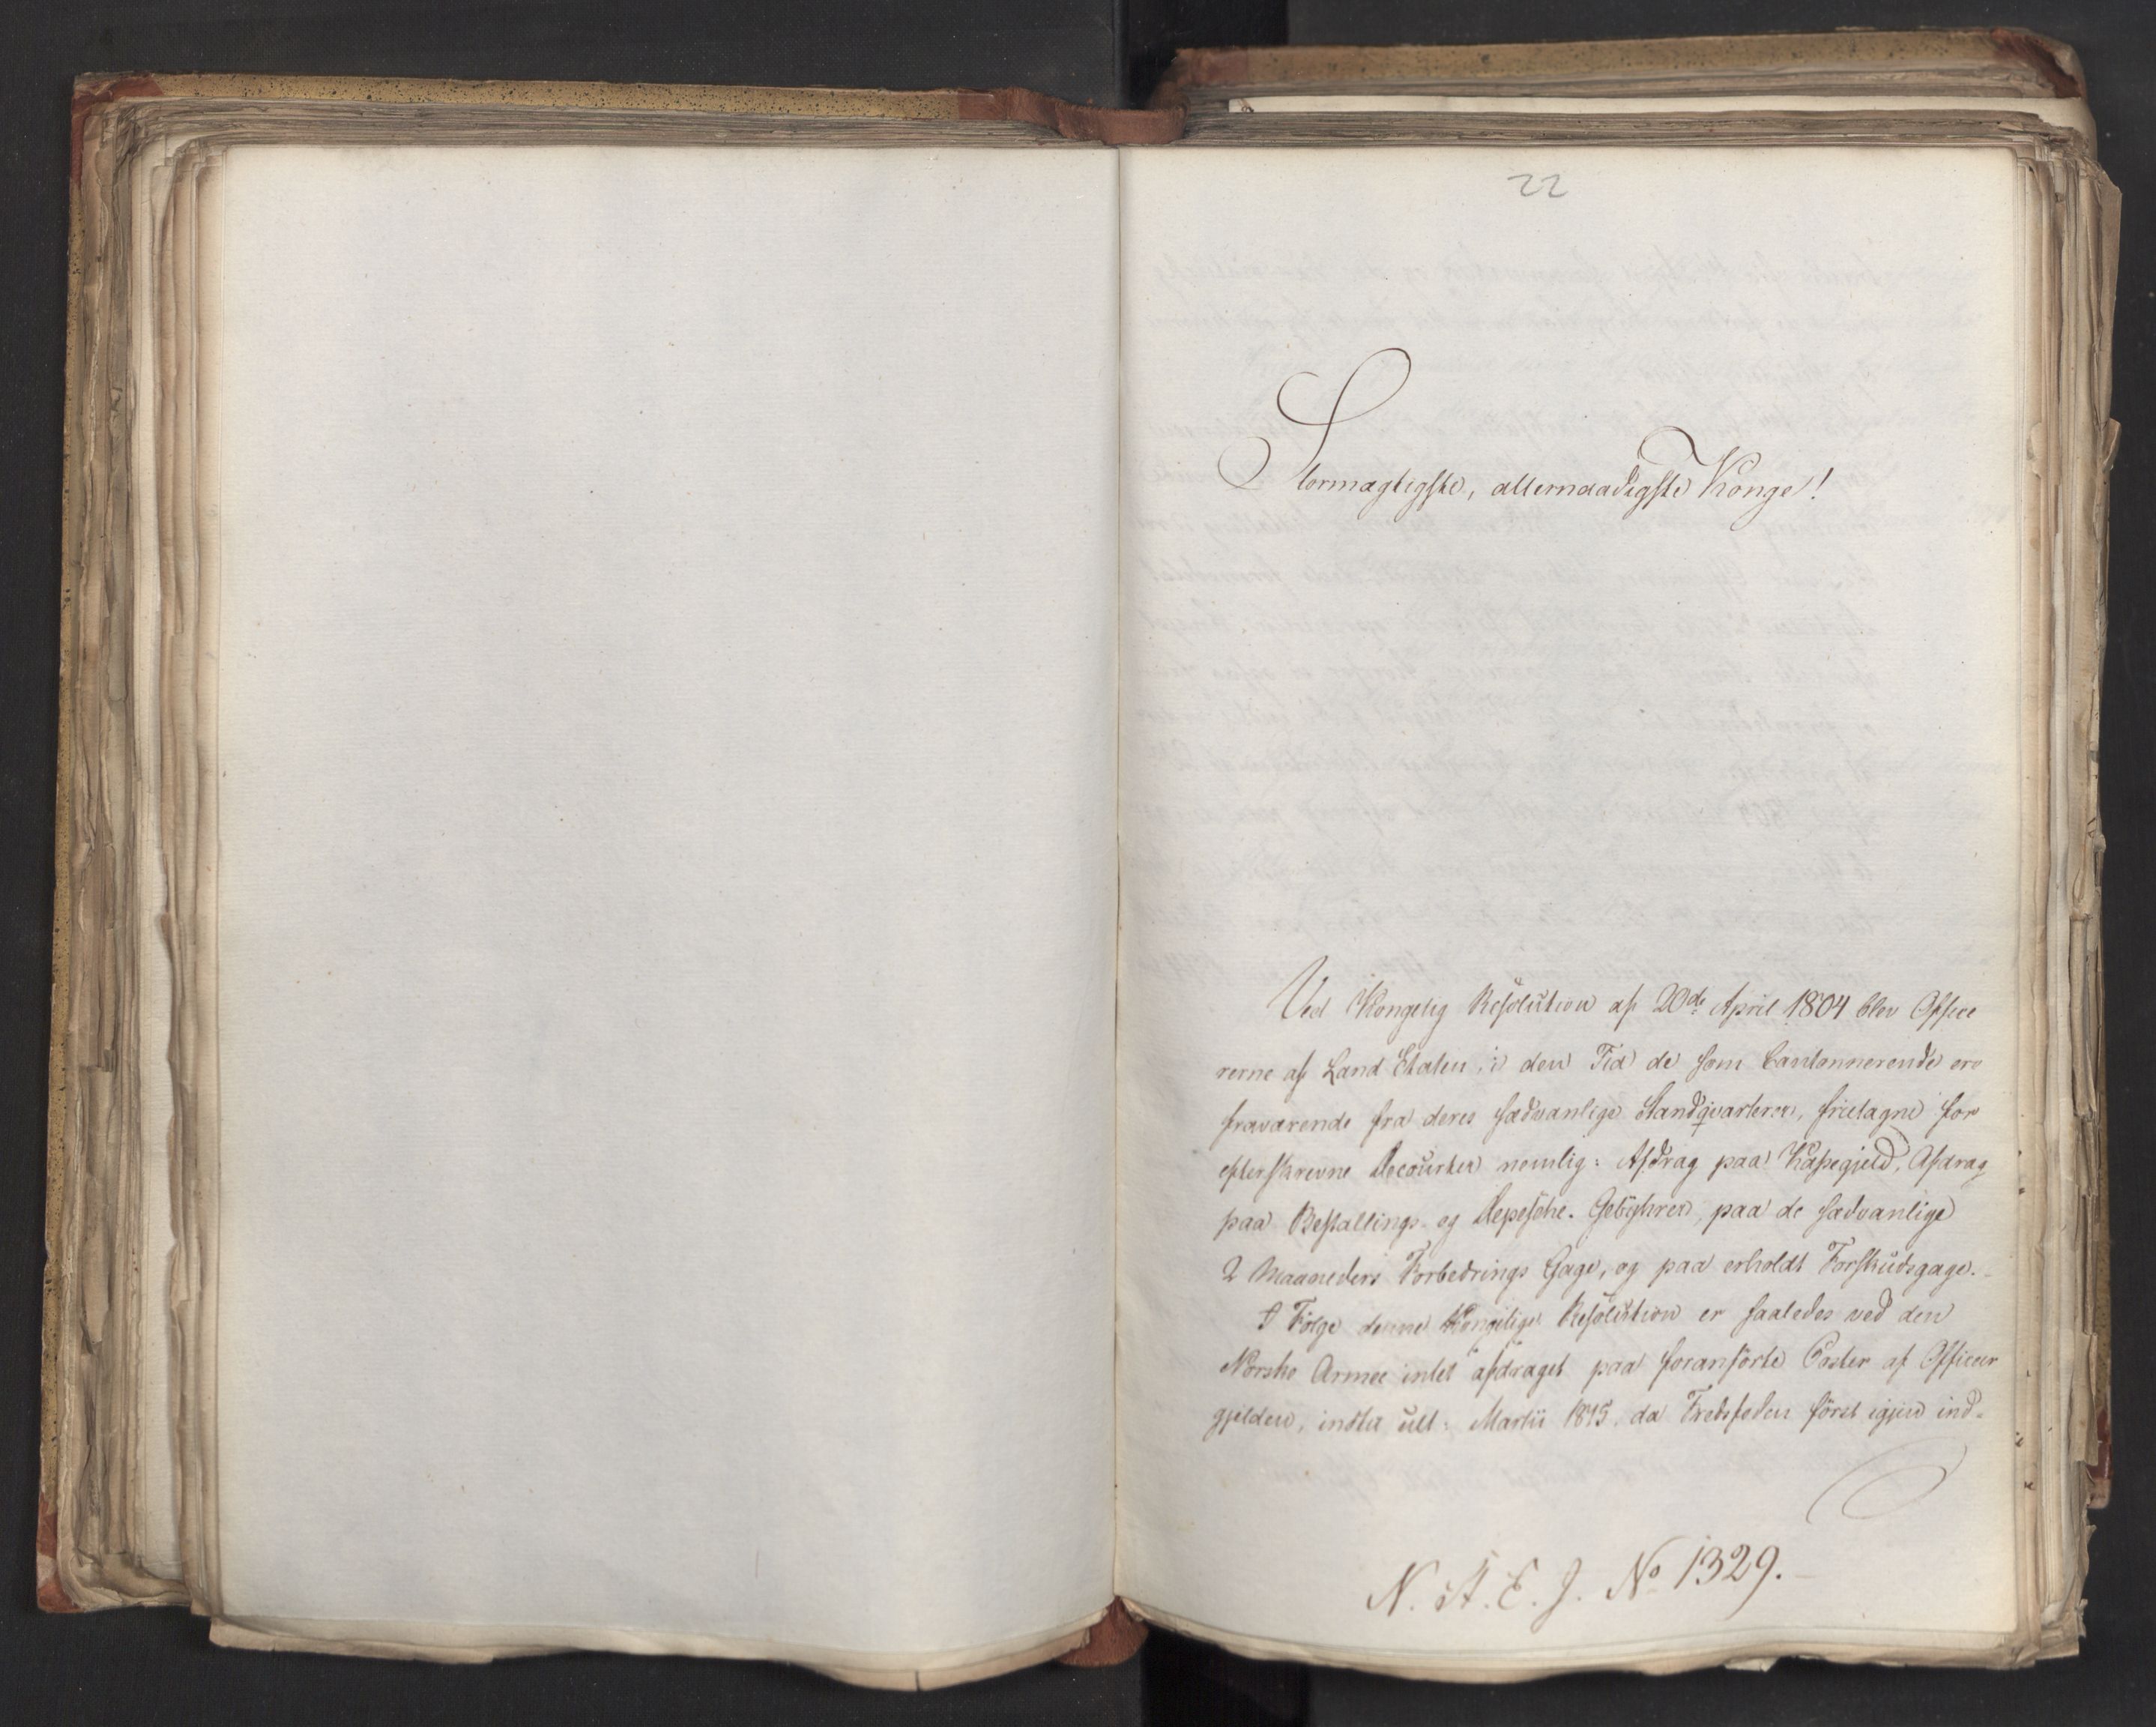 22
Stormægtigste, allernaadigste Konge!
Ved Kongelig Resolution af 20de April 1804 blev Office
rerne af Land Etaten, i den Tid de som Cantonnerende ere
fraværende fra deres sædvanlige Standqvarterer, frietagne for
efterskrevne Decourter nemlig: Afdrag paa Kassegjeld, Afdrag
paa Bestallings- og Depesche-Gebyhrer, paa de sædvanlige
2 Maaneders Forbedrings Gage, og paa erholdt Forskudsgage.
I Følge denne Kongelige Resolution er saaledes ved den
Norske Armee intet afdraget paa foranførte Poster af Officeer
gjelden, indtil ult: Martii 1815, da Fredsfoden først igjen ind-
N. A. E. J. No 1329.